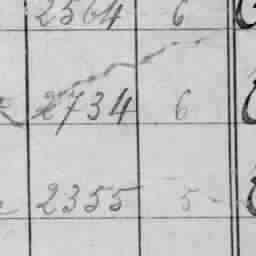 2564 6
2734 6
2355 5